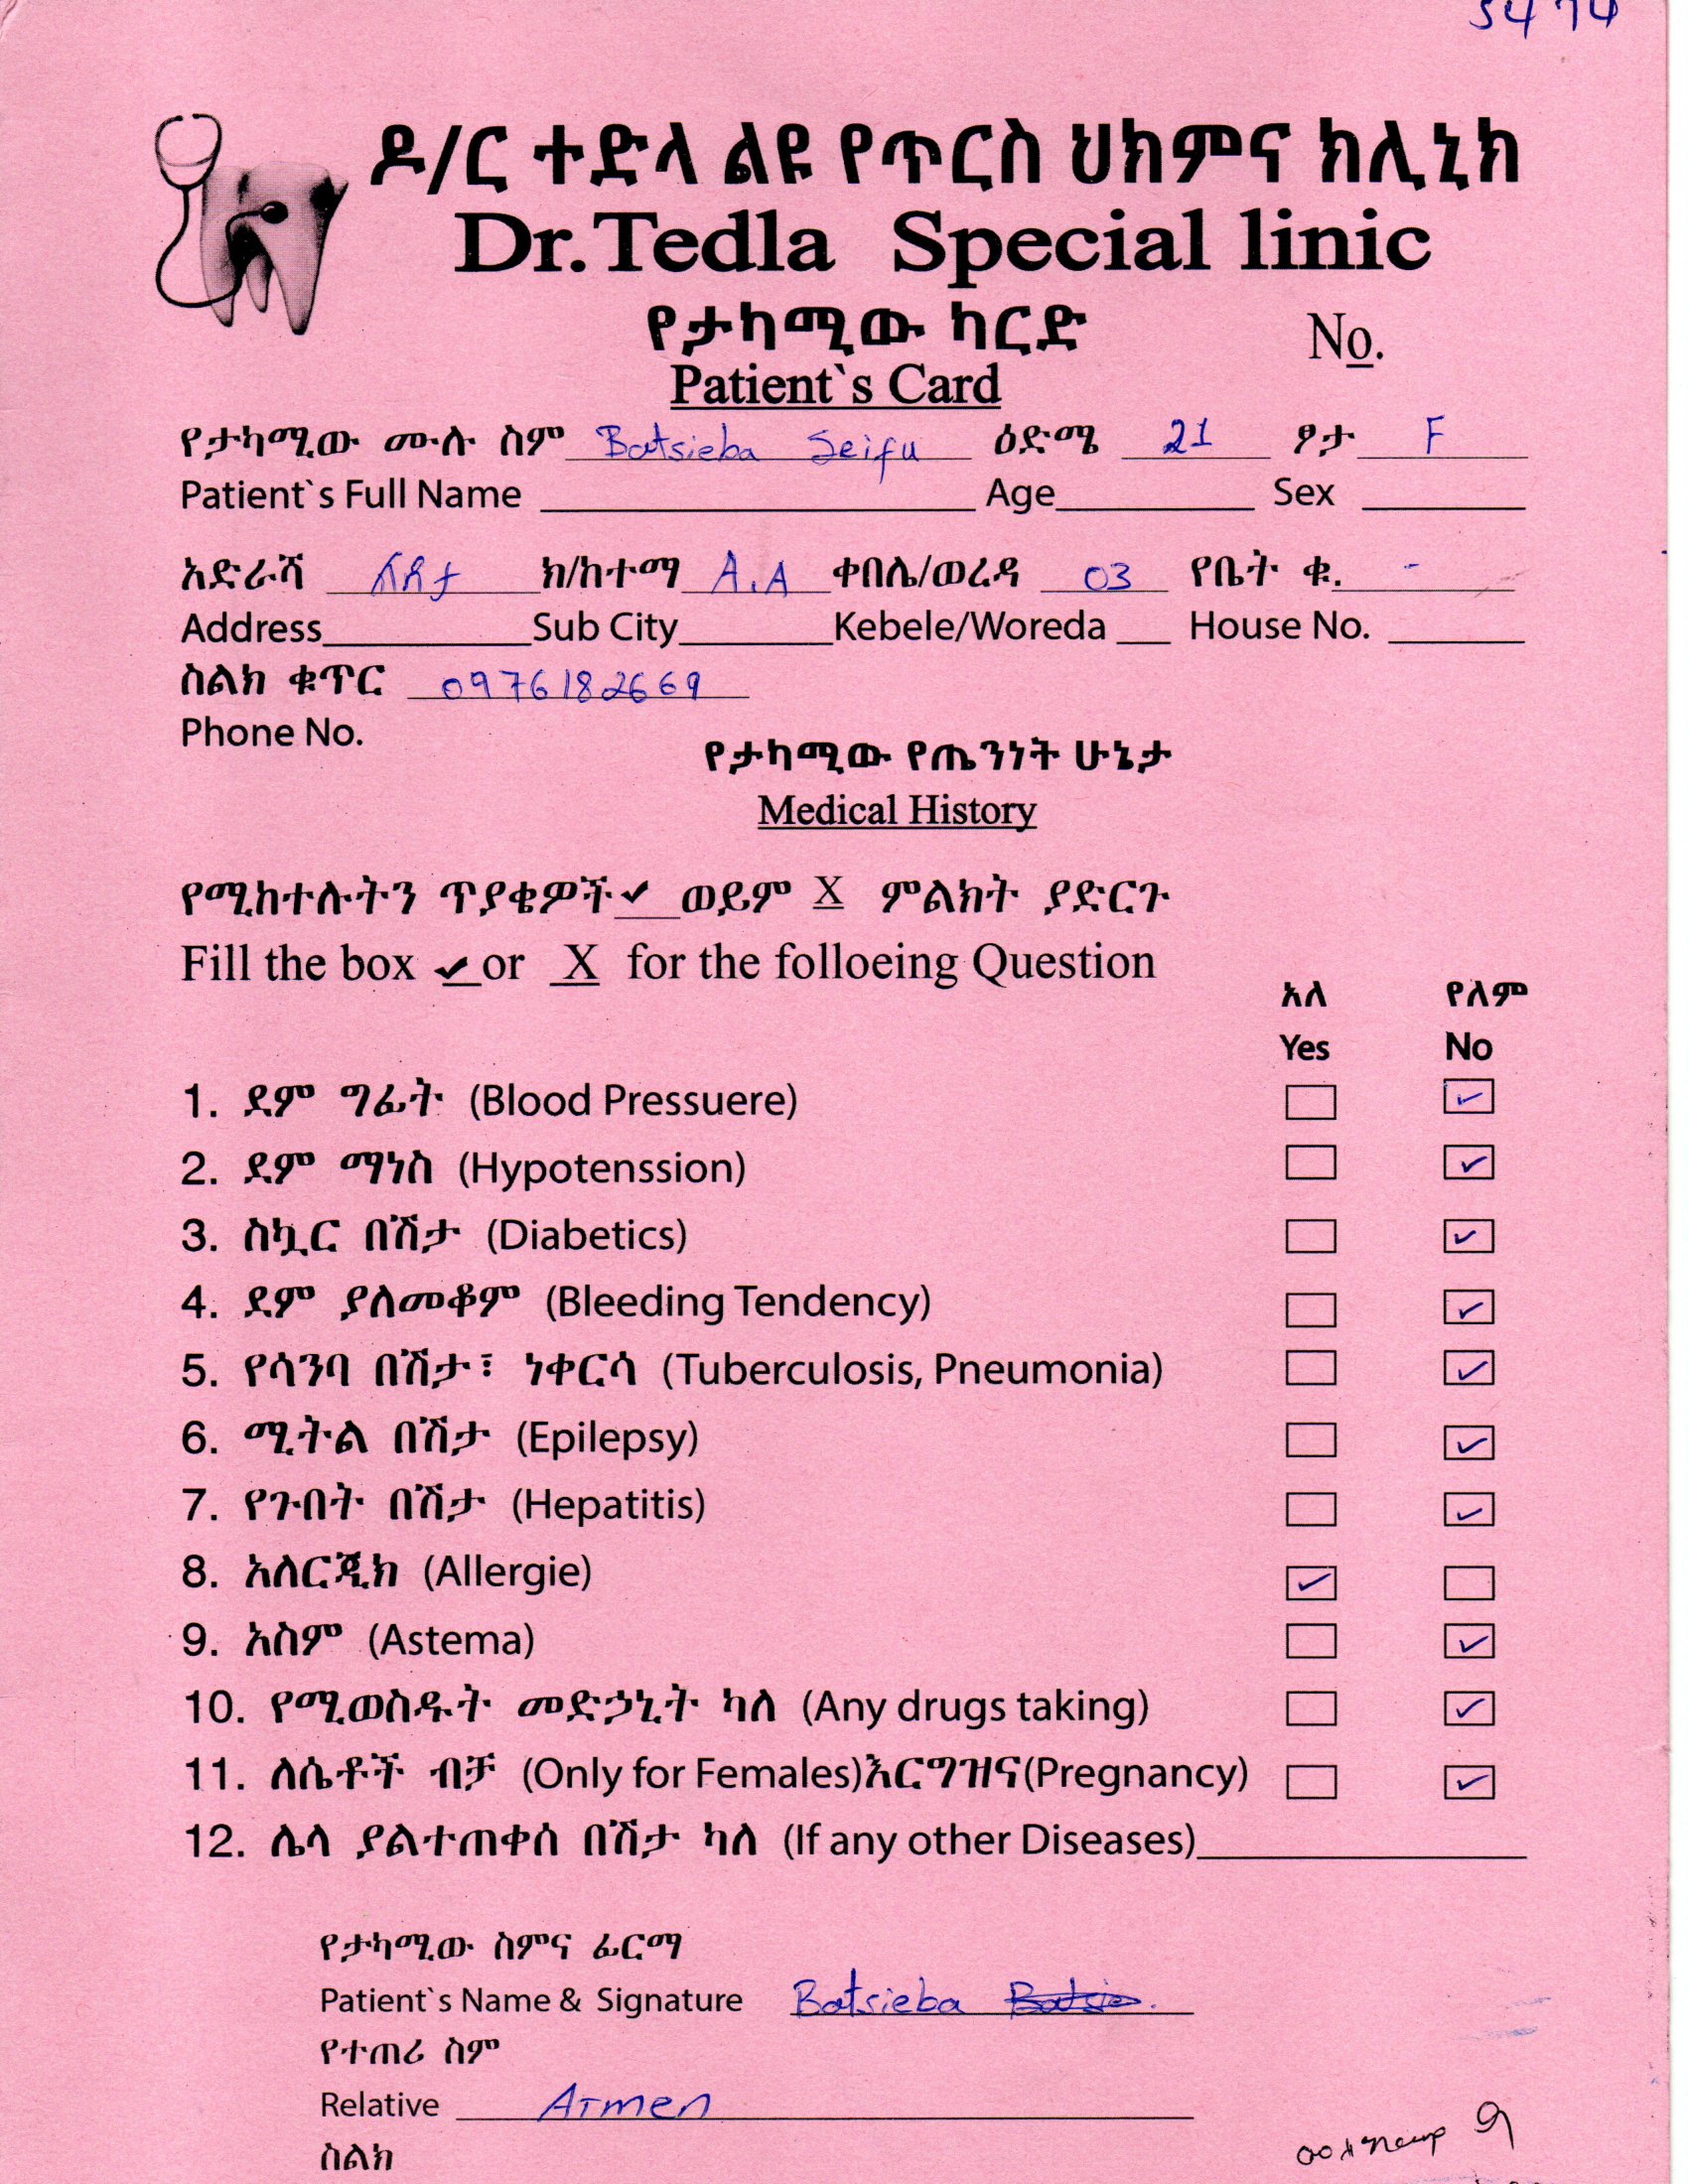 5474
ዶ/ር ተድላ ልዩ የጥርስ ህክምና ክሊኒክ
Dr.Tedla Special linic
የታካሚው ካርድ
No.
Patient`s Card
የታካሚው ሙሉ ስም Batsieba Seifu ዕድሜ 21 ፆታ F
Patient`s Full Name Age Sex
አድራሻ ክ/ከተማ A.A ቀበሌ/ወረዳ 03 የቤት ቁ. -
Address Sub City Kebele/Woreda House No.
ስልክ ቁጥር 0976182669
Phone No.
የታካሚው የጤንነት ሁኔታ
Medical History
የሚከተሉትን ጥያቄዎች✔ ወይም X ምልክት ያድርጉ
Fill the box ✔ or X for the folloeing Question
አለ የለም
Yes No
1. ደም ግፊት (Blood Pressuere) ✓
2. ደም ማነስ (Hypotenssion) ✓
3. ስኳር በሽታ (Diabetics) ✓
4. ደም ያለመቆም (Bleeding Tendency) ✓
5. የሳንባ በሽታ፣ ነቀርሳ (Tuberculosis, Pneumonia) ✓
6. ሚትል በሽታ (Epilepsy) ✓
7. የጉበት በሽታ (Hepatitis) ✓
8. አለርጂክ (Allergie) ✓
9. አስም (Astema) ✓
10. የሚወስዱት መድኃኒት ካለ (Any drugs taking) ✓
11. ለሴቶች ብቻ (Only for Females)እርግዝና(Pregnancy) ✓
12. ሌላ ያልተጠቀሰ በሽታ ካለ (If any other Diseases)
የታካሚው ስምና ፊርማ
Patient`s Name & Signature Batsieba
የተጠሪ ስም
Relative Armen
ስልክ